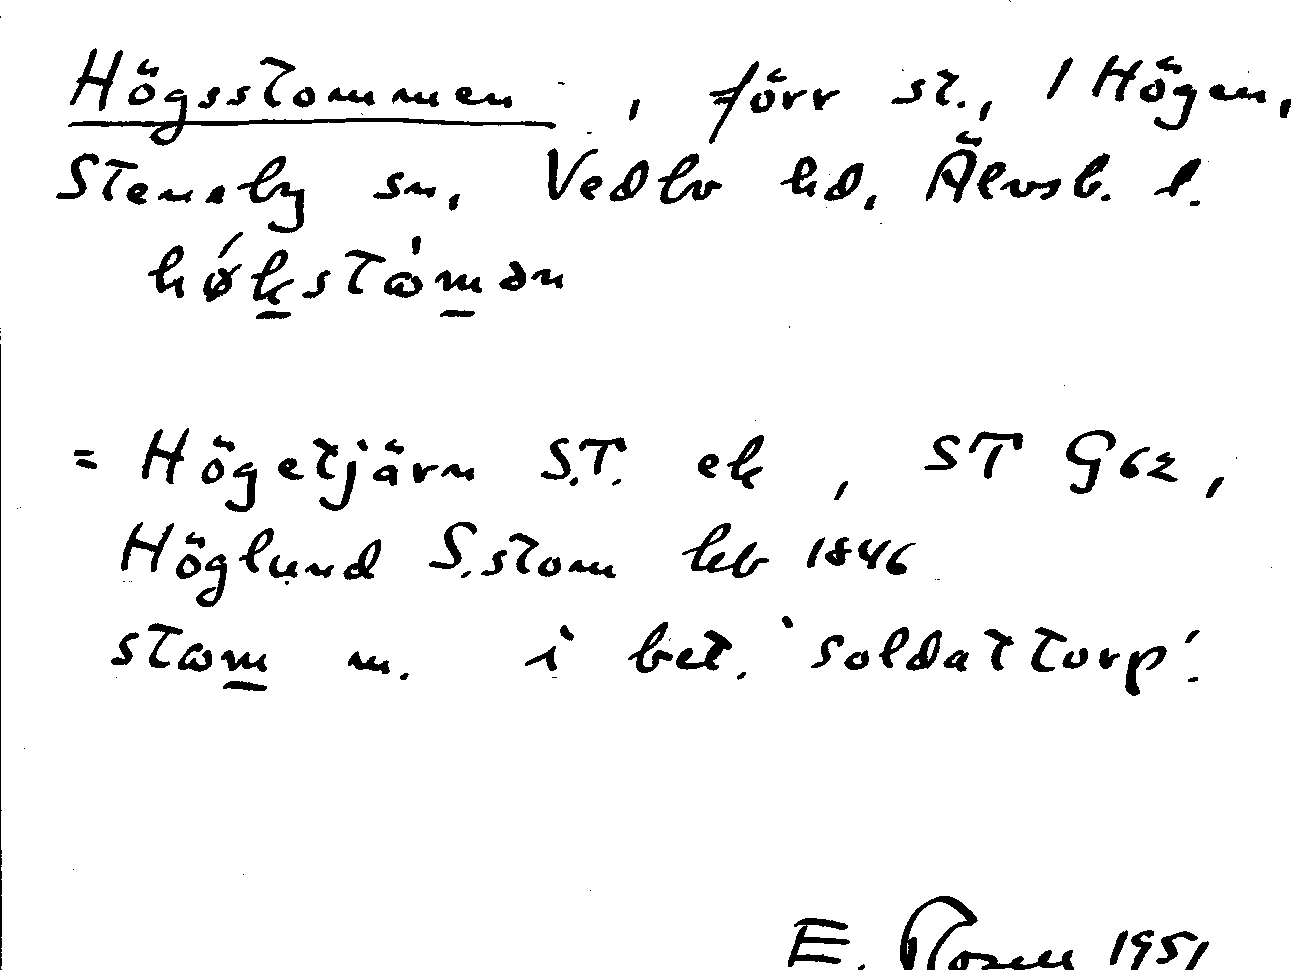 Högsstommen , förr st., 1 Högen,
Steneby sn, Vedbo hd, Älvsb. l.
= Högetjärn S.T. ek , ST G62,
Höglund S.stom hfb 1846
stom m. i bet. 'soldattorp'.
E. Rosell 1951